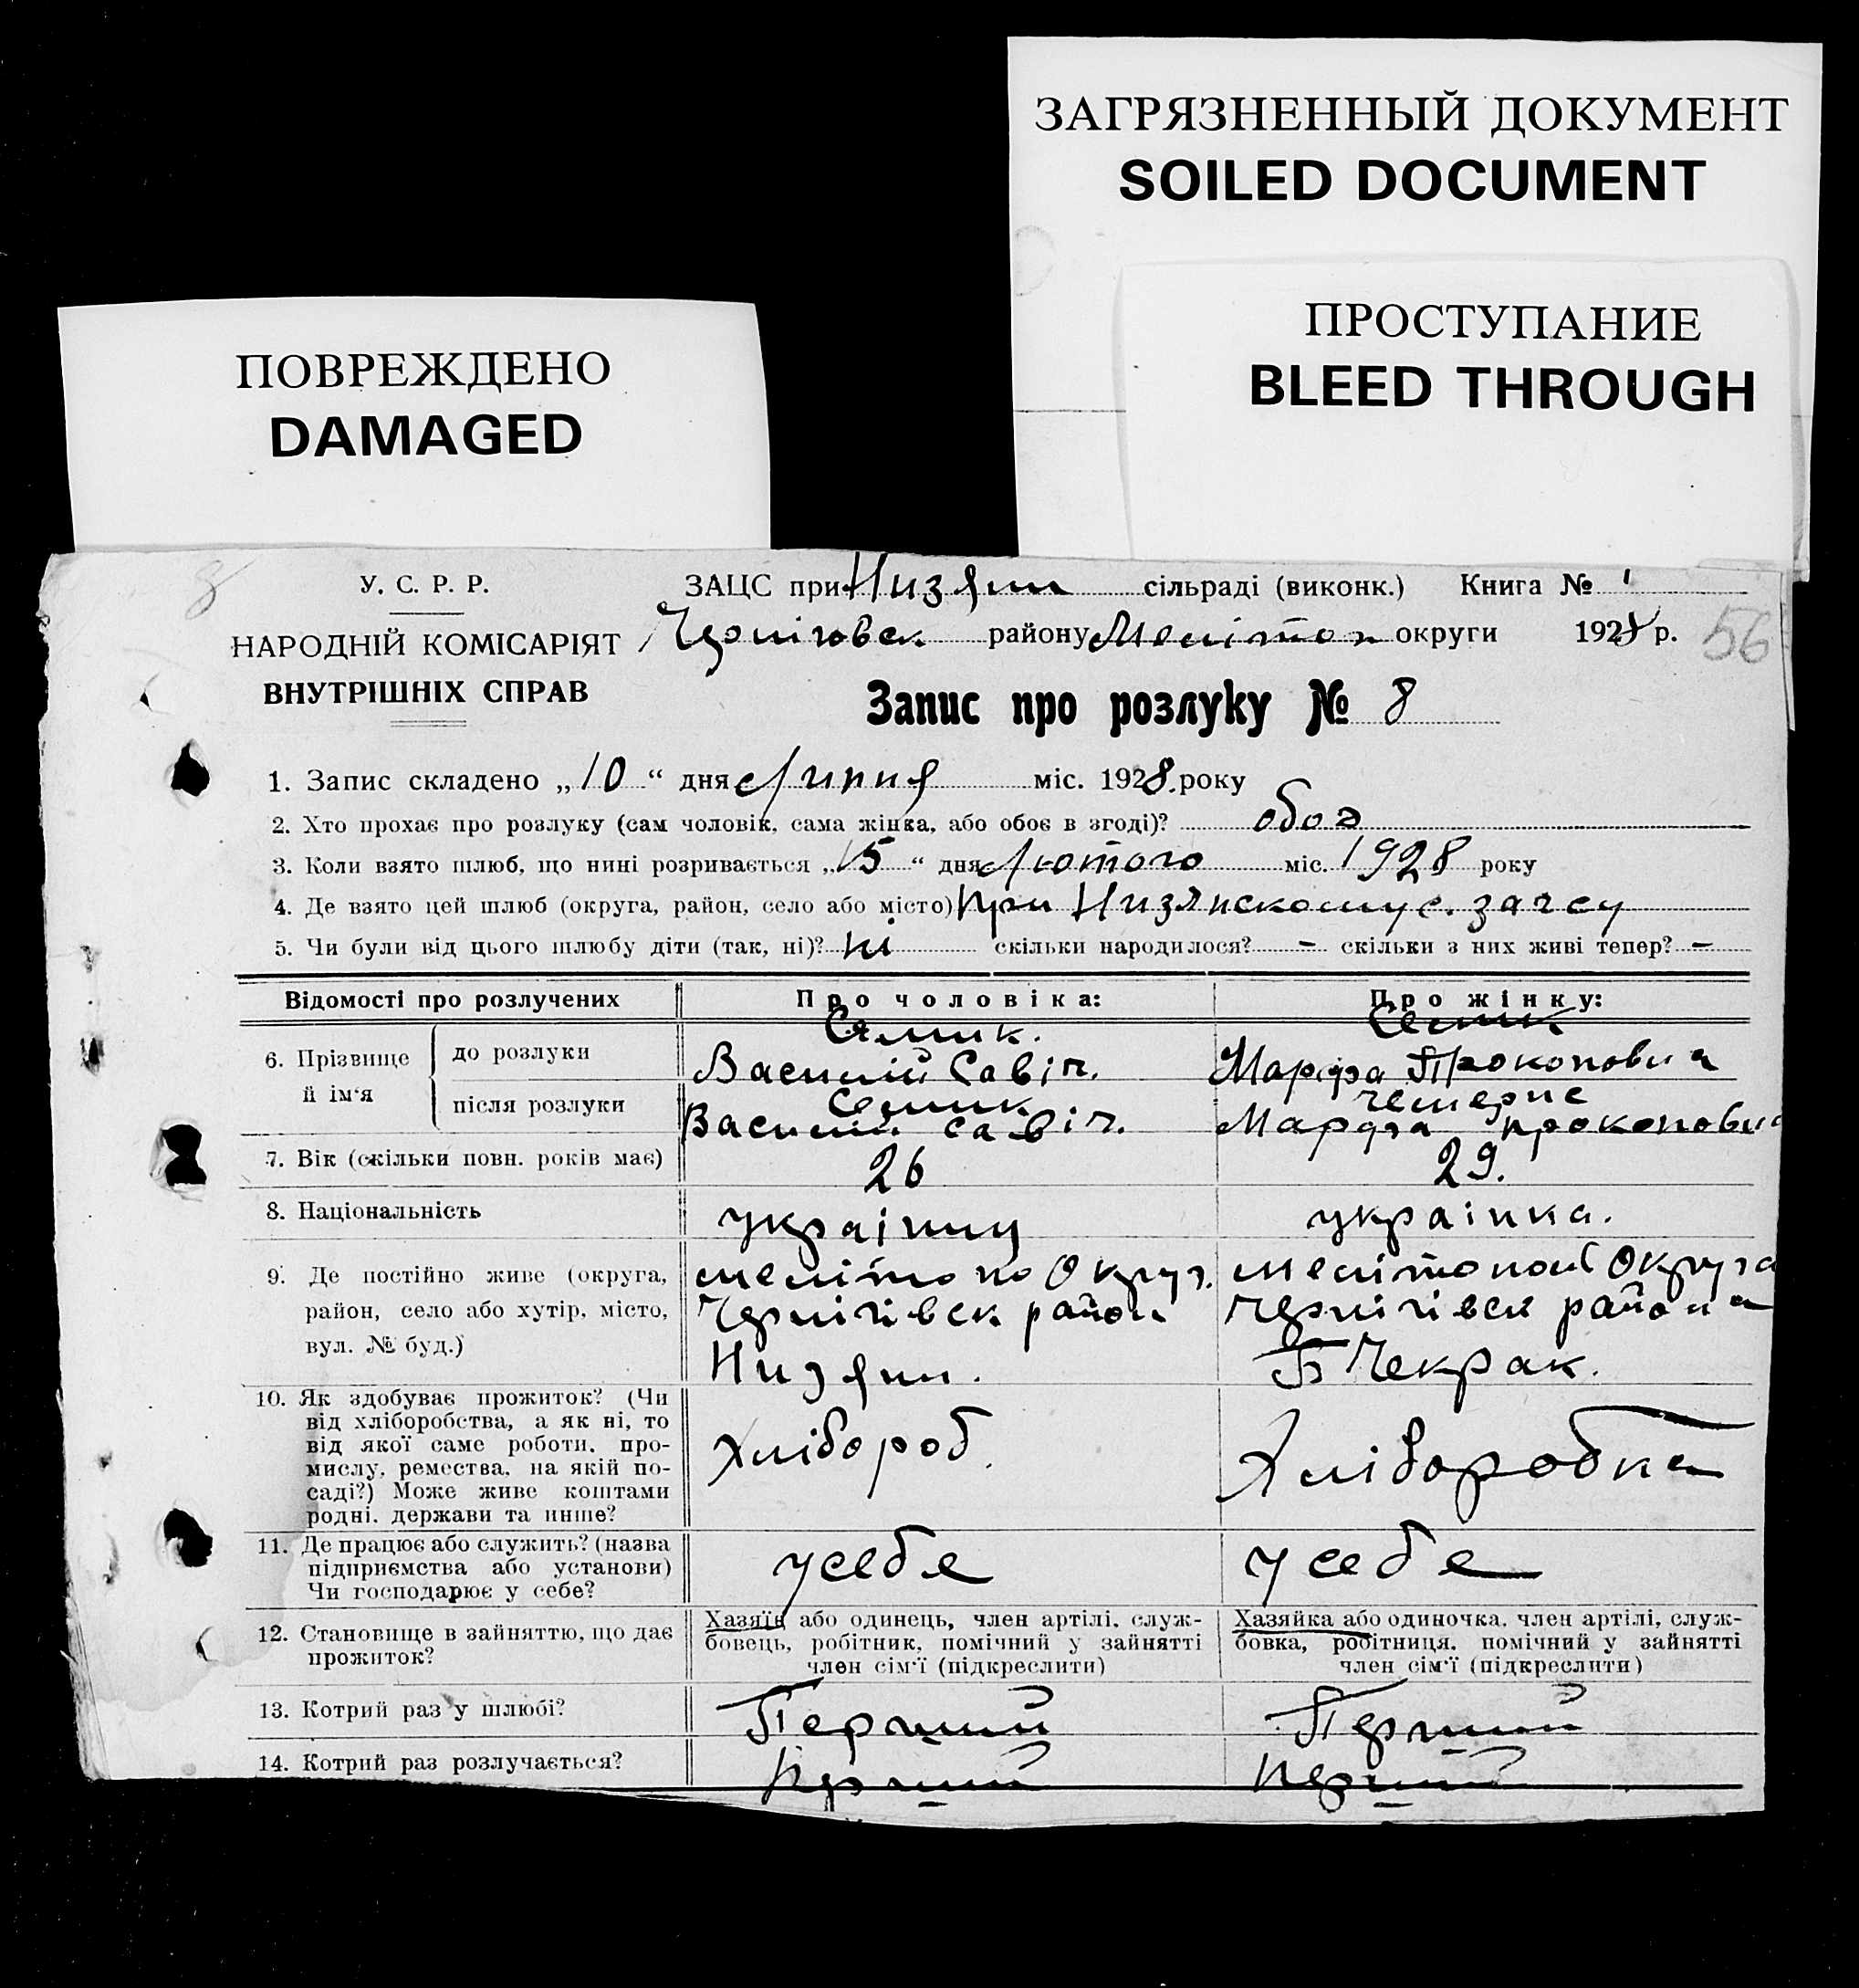 ЗАГРЯЗНЕННЫЙ ДОКУМЕНТ
SOILED DOCUMENT
ПРОСТУПАНИЕ
BLEED THROUGH
ПОВРЕЖДЕНО
DAMAGED
У. С. Р. Р.
НАРОДНІЙ КОМІСАРІЯТ
ВНУТРІШНІХ СПРАВ
ЗАЦС при Низян сільраді (виконк.) Книга № 1
Черніговск району Мелітоп округи 1928 р.
56
Запис про розлуку № 8
1. Запис складено „10“ дня Липня міс. 1928. року
2. Хто прохає про розлуку (сам чоловік, сама жінка, або обоє в згоді)? обоє
3. Коли взято шлюб, що нині розривається „15“ дня Лютого міс. 1928 року
4. Де взято цей шлюб (округа, район, село або місто) При Низянскому с. загсу
5. Чи були від цього шлюбу діти (так, ні)? ні скільки народилося? – скільки з них живі тепер? –
Відомості про розлучених Про чоловіка: Про жінку:
6. Прізвище й ім'я
до розлуки Семик. Василій Савіч. Семик Марфа Прокопович
після розлуки Семик Василій Савіч. Марфа Прокопович
7. Вік (скільки повн. років має) 26 29.
8. Національність українец українка.
9. Де постійно живе (округа, район, село або хутір, місто, вул. № буд.)
меліто по Округ.
Чернігівск район
Низян.
меліто Округа
Чернігівск района
Б Чекрак.
10. Як здобуває прожиток? (Чи
від хліборобства, а як ні, то
від якої саме роботи, про-
мислу, ремества, на якій по-
саді?) Може живе коштами
родні, держави та инше?
Хлібороб.
Хліборобка
11. Де працює або служить? (назва
підприємства або установи)
Чи господарює у себе?
у себе
у себе
12. Становище в зайняттю, що дає
прожиток?
Хазяїн або одинець, член артілі, служ-
бовець, робітник, помічний у зайнятті
член сім'ї (підкреслити)
Хазяйка або одиночка, член артілі, служ-
бовка, робітниця, помічний у зайнятті
член сім'ї (підкреслити)
13. Котрий раз у шлюбі? Перший Перший
14. Котрий раз розлучається? Перший Перший